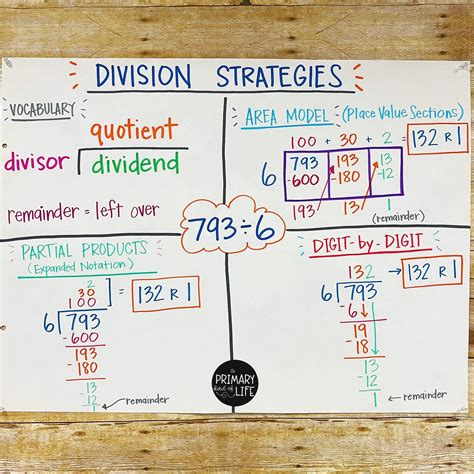 DIVISION STRATEGIES
VOCABULARY
quotient
divisor dividend
remainder = left over
AREA MODEL (Place Value Sections)
100 + 30 + 2 = 132 R 1
6 793 193 13
-600 -180 -12
193 13 1
(remainder)
793÷6
PARTIAL PRODUCTS
(Expanded Notation)
2
30
100 = 132 R 1
6 793
-600
193
-180
13
-12
1 ← remainder
DIGIT-by-DIGIT
132 → 132 R 1
6 793
-6
19
-18
13
-12
1 ← remainder
a
PRIMARY
kind of
LIFE